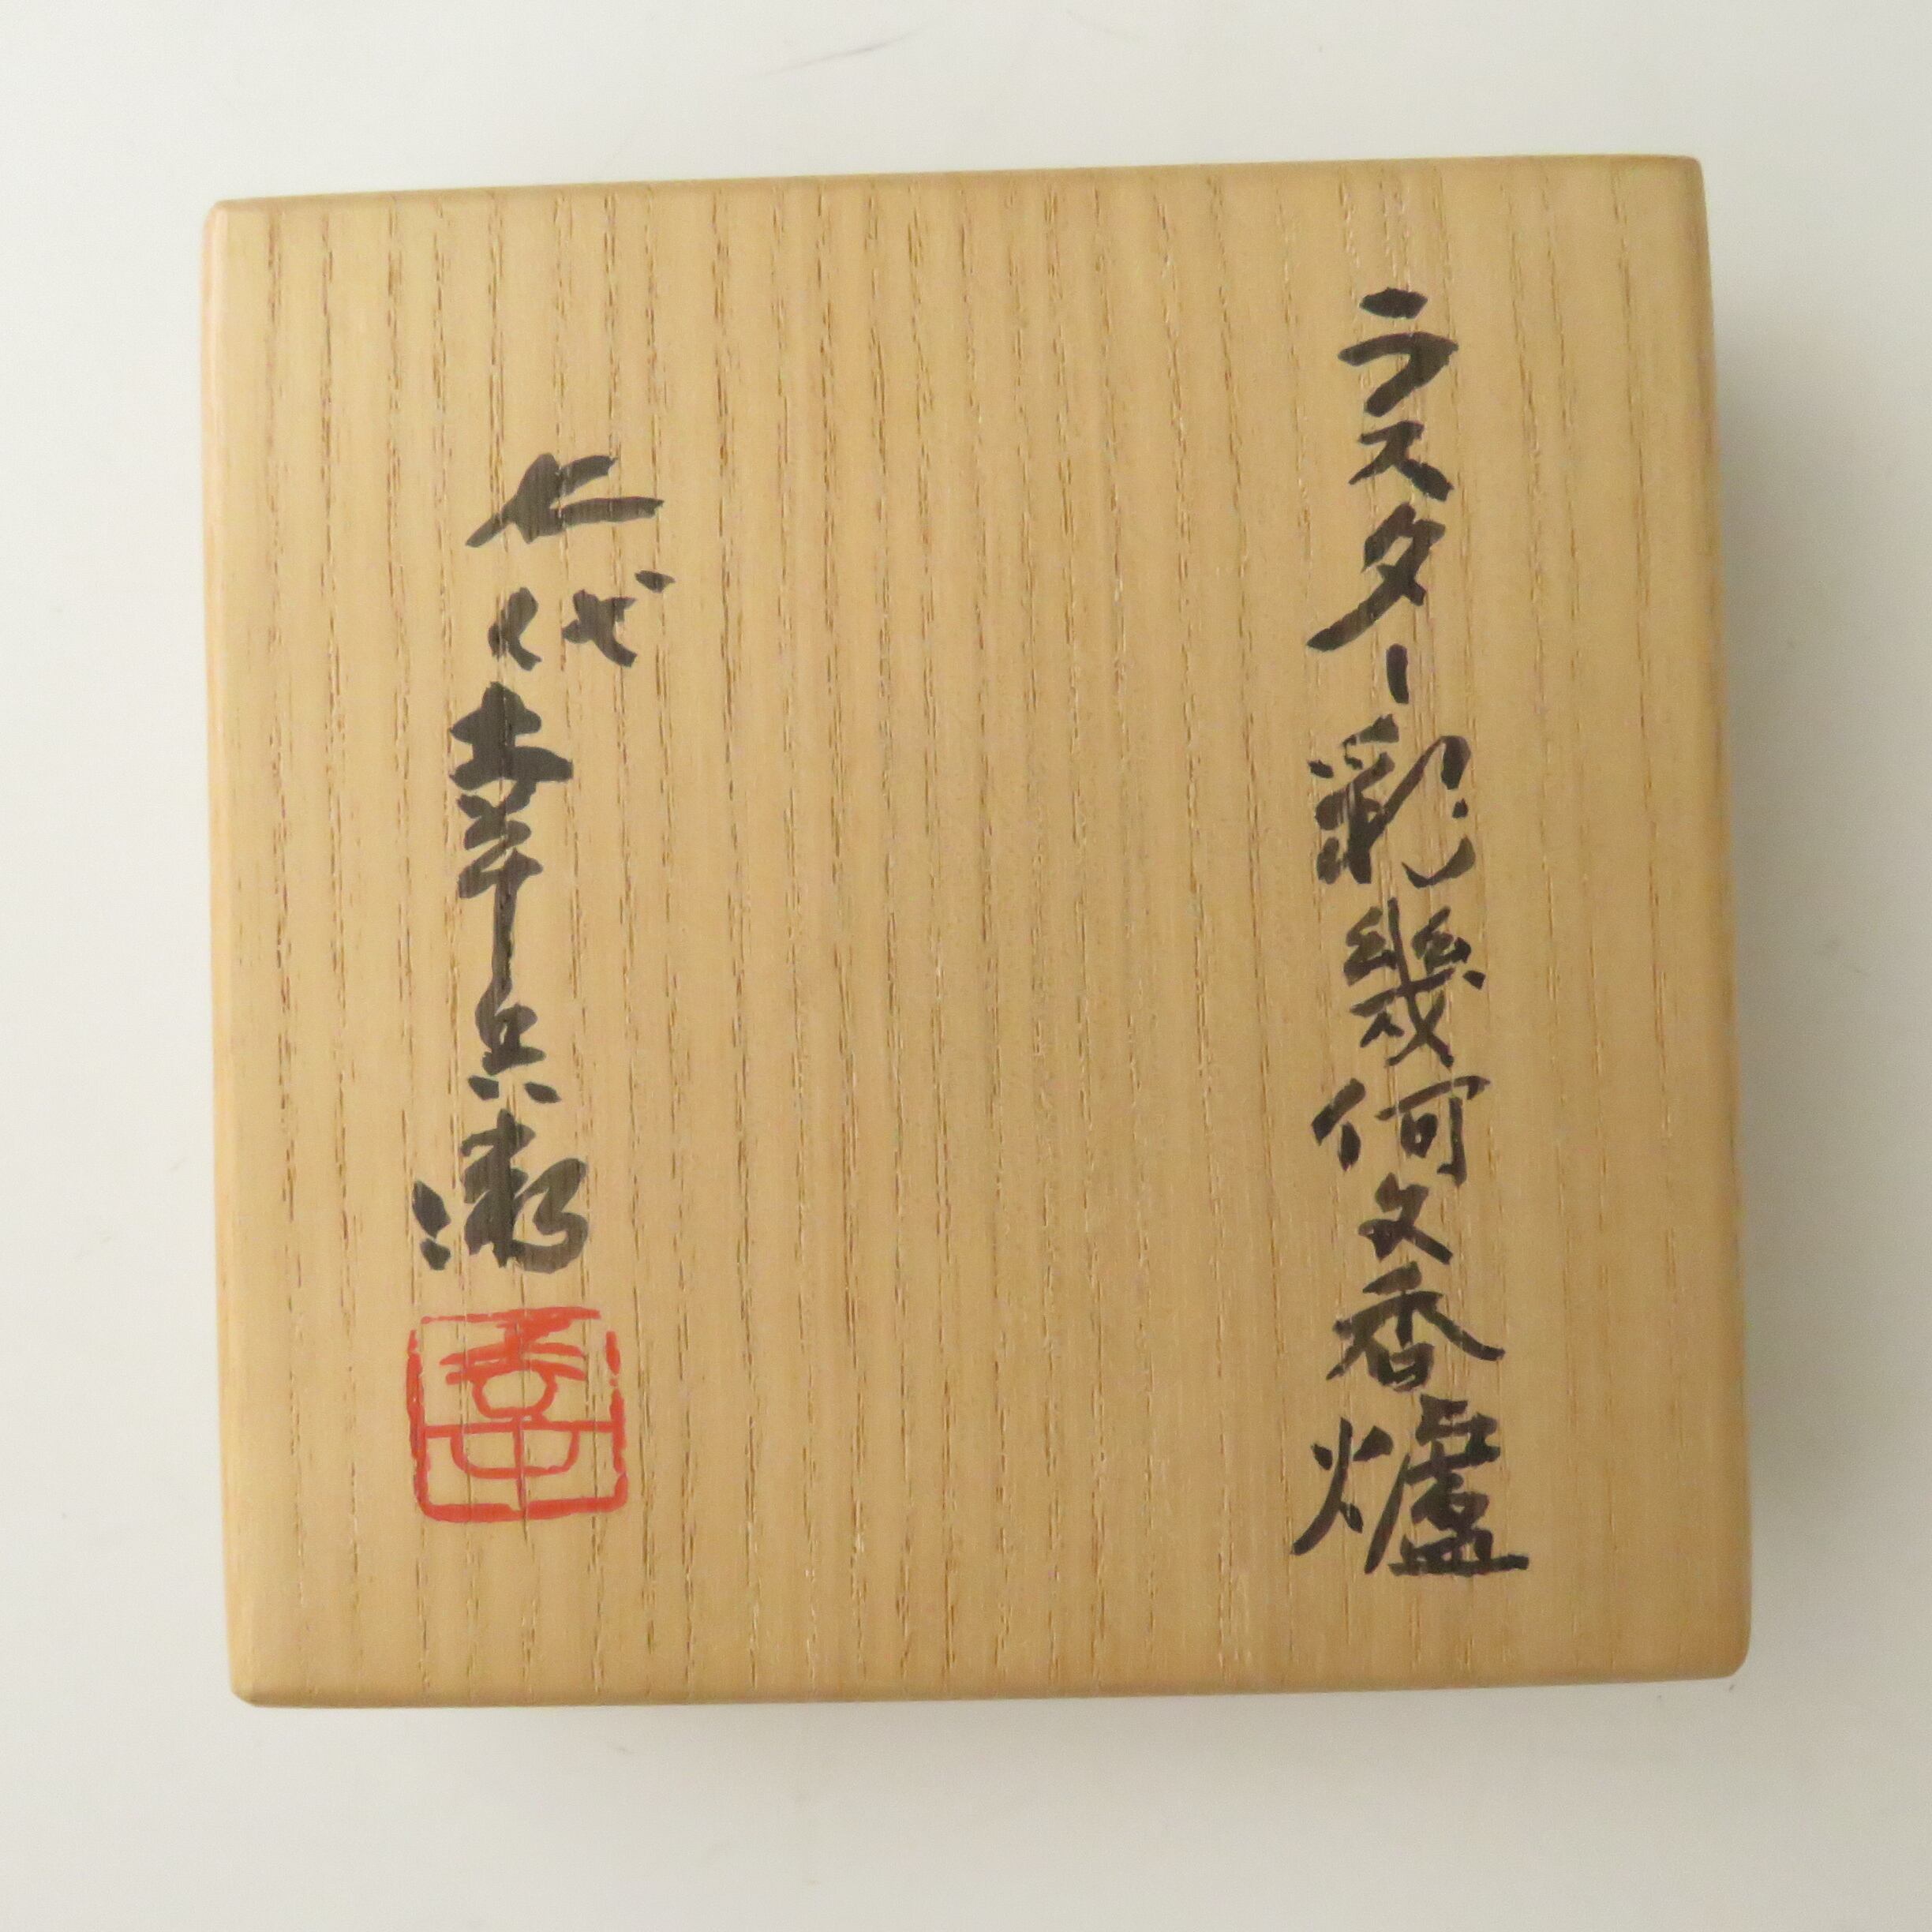 ラスター彩幾何文香爐
七代幸兵衛
幸中